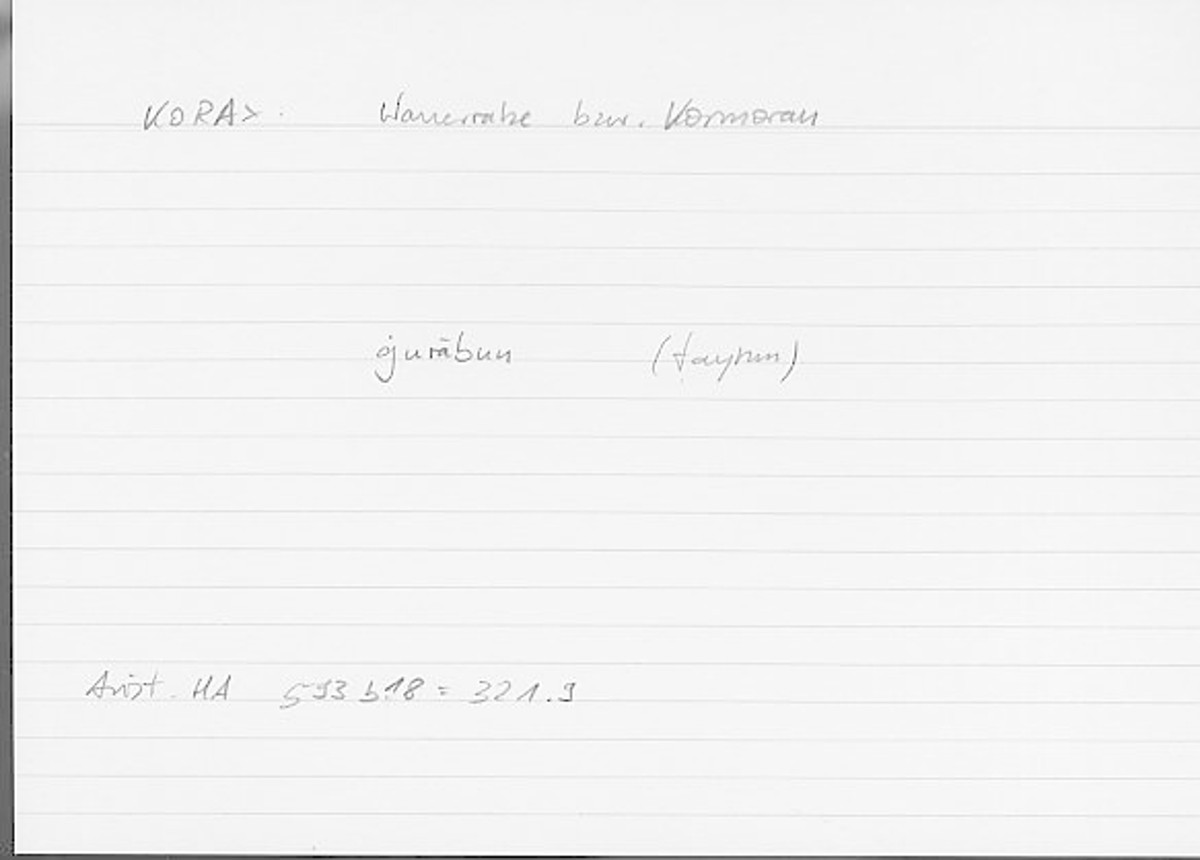 KORAX. Wasserrabe bzw. Kormoran
ġurābun (ṭayrun)
Arist. HA 593 b18 = 321.9